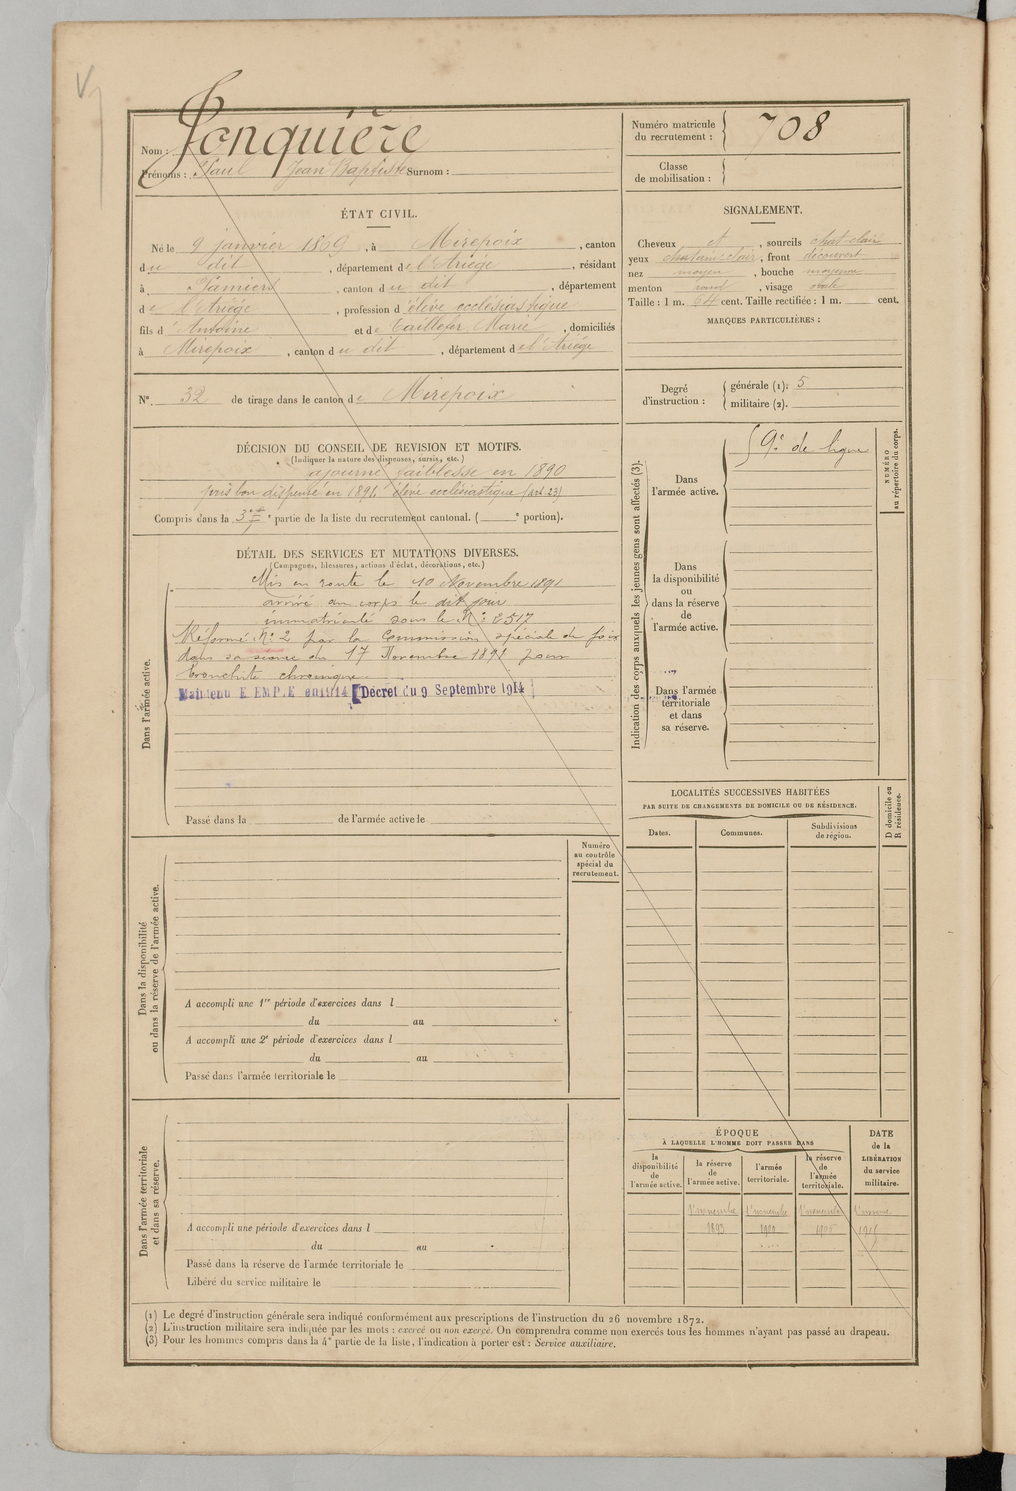 Nom : Jonquière
Prénoms : Paul Jean Baptiste Surnom :
Numéro matricule du recrutement : 708
Classe de mobilisation :
ÉTAT CIVIL.
Né le 9 janvier 1869, à Mirepoix, canton
du dit, département de l'Ariége, résidant
à Pamiers, canton du dit, département
de l'Ariége, profession d'élève ecclésiastique
fils d'Antoine et de Taillefer Marie, domiciliés
à Mirepoix, canton du dit, département de l'Ariége
SIGNALEMENT.
Cheveux et, sourcils chat-clair
yeux chatain clair, front découvert
nez moyen, bouche moyenne
menton rond, visage ovale
Taille : 1 m. 64 cent. Taille rectifiée : 1 m. cent.
MARQUES PARTICULIÈRES :
N° 32 de tirage dans le canton de Mirepoix
Degré d'instruction : générale (1): 5
militaire (2).
DÉCISION DU CONSEIL DE REVISION ET MOTIFS.
(Indiquer la nature des dispenses, sursis, etc.)
ajourné, faiblesse en 1890
pris bon dispensé en 1891 élève ecclésiastique (art. 23)
Compris dans la 3e partie de la liste du recrutement cantonal. ( e portion).
DÉTAIL DES SERVICES ET MUTATIONS DIVERSES.
(Campagnes, blessures, actions d'éclat, décorations, etc.)
Dans l'armée active.
Mis en route le 10 Novembre 1891
arrivé au corps le dit jour
immatriculé sous le N° 2517
Réformé N° 2 par la Commission spéciale de foix
dans sa séance du 17 Novembre 1891 pour
bronchite chronique
Maintenu E.EMP.E en 1914 Décret du 9 Septembre 1914
Passé dans la de l'armée active le
Indication des corps auxquels les jeunes gens sont affectés (3).
Dans l'armée active.
9e de ligne
NUMÉRO au répertoire du corps.
Dans la disponibilité ou dans la réserve de l'armée active.
Dans l'armée territoriale et dans sa réserve.
LOCALITÉS SUCCESSIVES HABITÉES
PAR SUITE DE CHANGEMENTS DE DOMICILE OU DE RÉSIDENCE.
Dates. Communes. Subdivisions de région. D domicile ou R résidence.
Numéro au contrôle spécial du recrutement.
Dans la disponibilité ou dans la réserve de l'armée active.
A accompli une 1re période d'exercices dans l
du au
A accompli une 2e période d'exercices dans l
du au
Passé dans l'armée territoriale le
Dans l'armée territoriale et dans sa réserve.
A accompli une période d'exercices dans l
du au
Passé dans la réserve de l'armée territoriale le
Libéré du service militaire le
ÉPOQUE
À LAQUELLE L'HOMME DOIT PASSER DANS
la disponibilité de l'armée active. la réserve de l'armée active. l'armée territoriale. la réserve de l'armée territoriale. DATE de la LIBÉRATION du service militaire.
1er novembre 1er novembre 1er novembre
1893 1900
(1) Le degré d'instruction générale sera indiqué conformément aux prescriptions de l'instruction du 26 novembre 1872.
(2) L'instruction militaire sera indiquée par les mots : exercé ou non exercé. On comprendra comme non exercés tous les hommes n'ayant pas passé au drapeau.
(3) Pour les hommes compris dans la 4e partie de la liste, l'indication à porter est : Service auxiliaire.